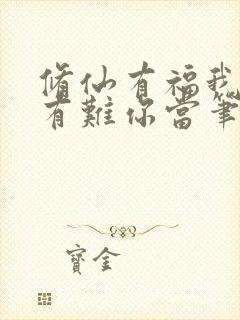 脩仙有福我
有難你當筆
寶金